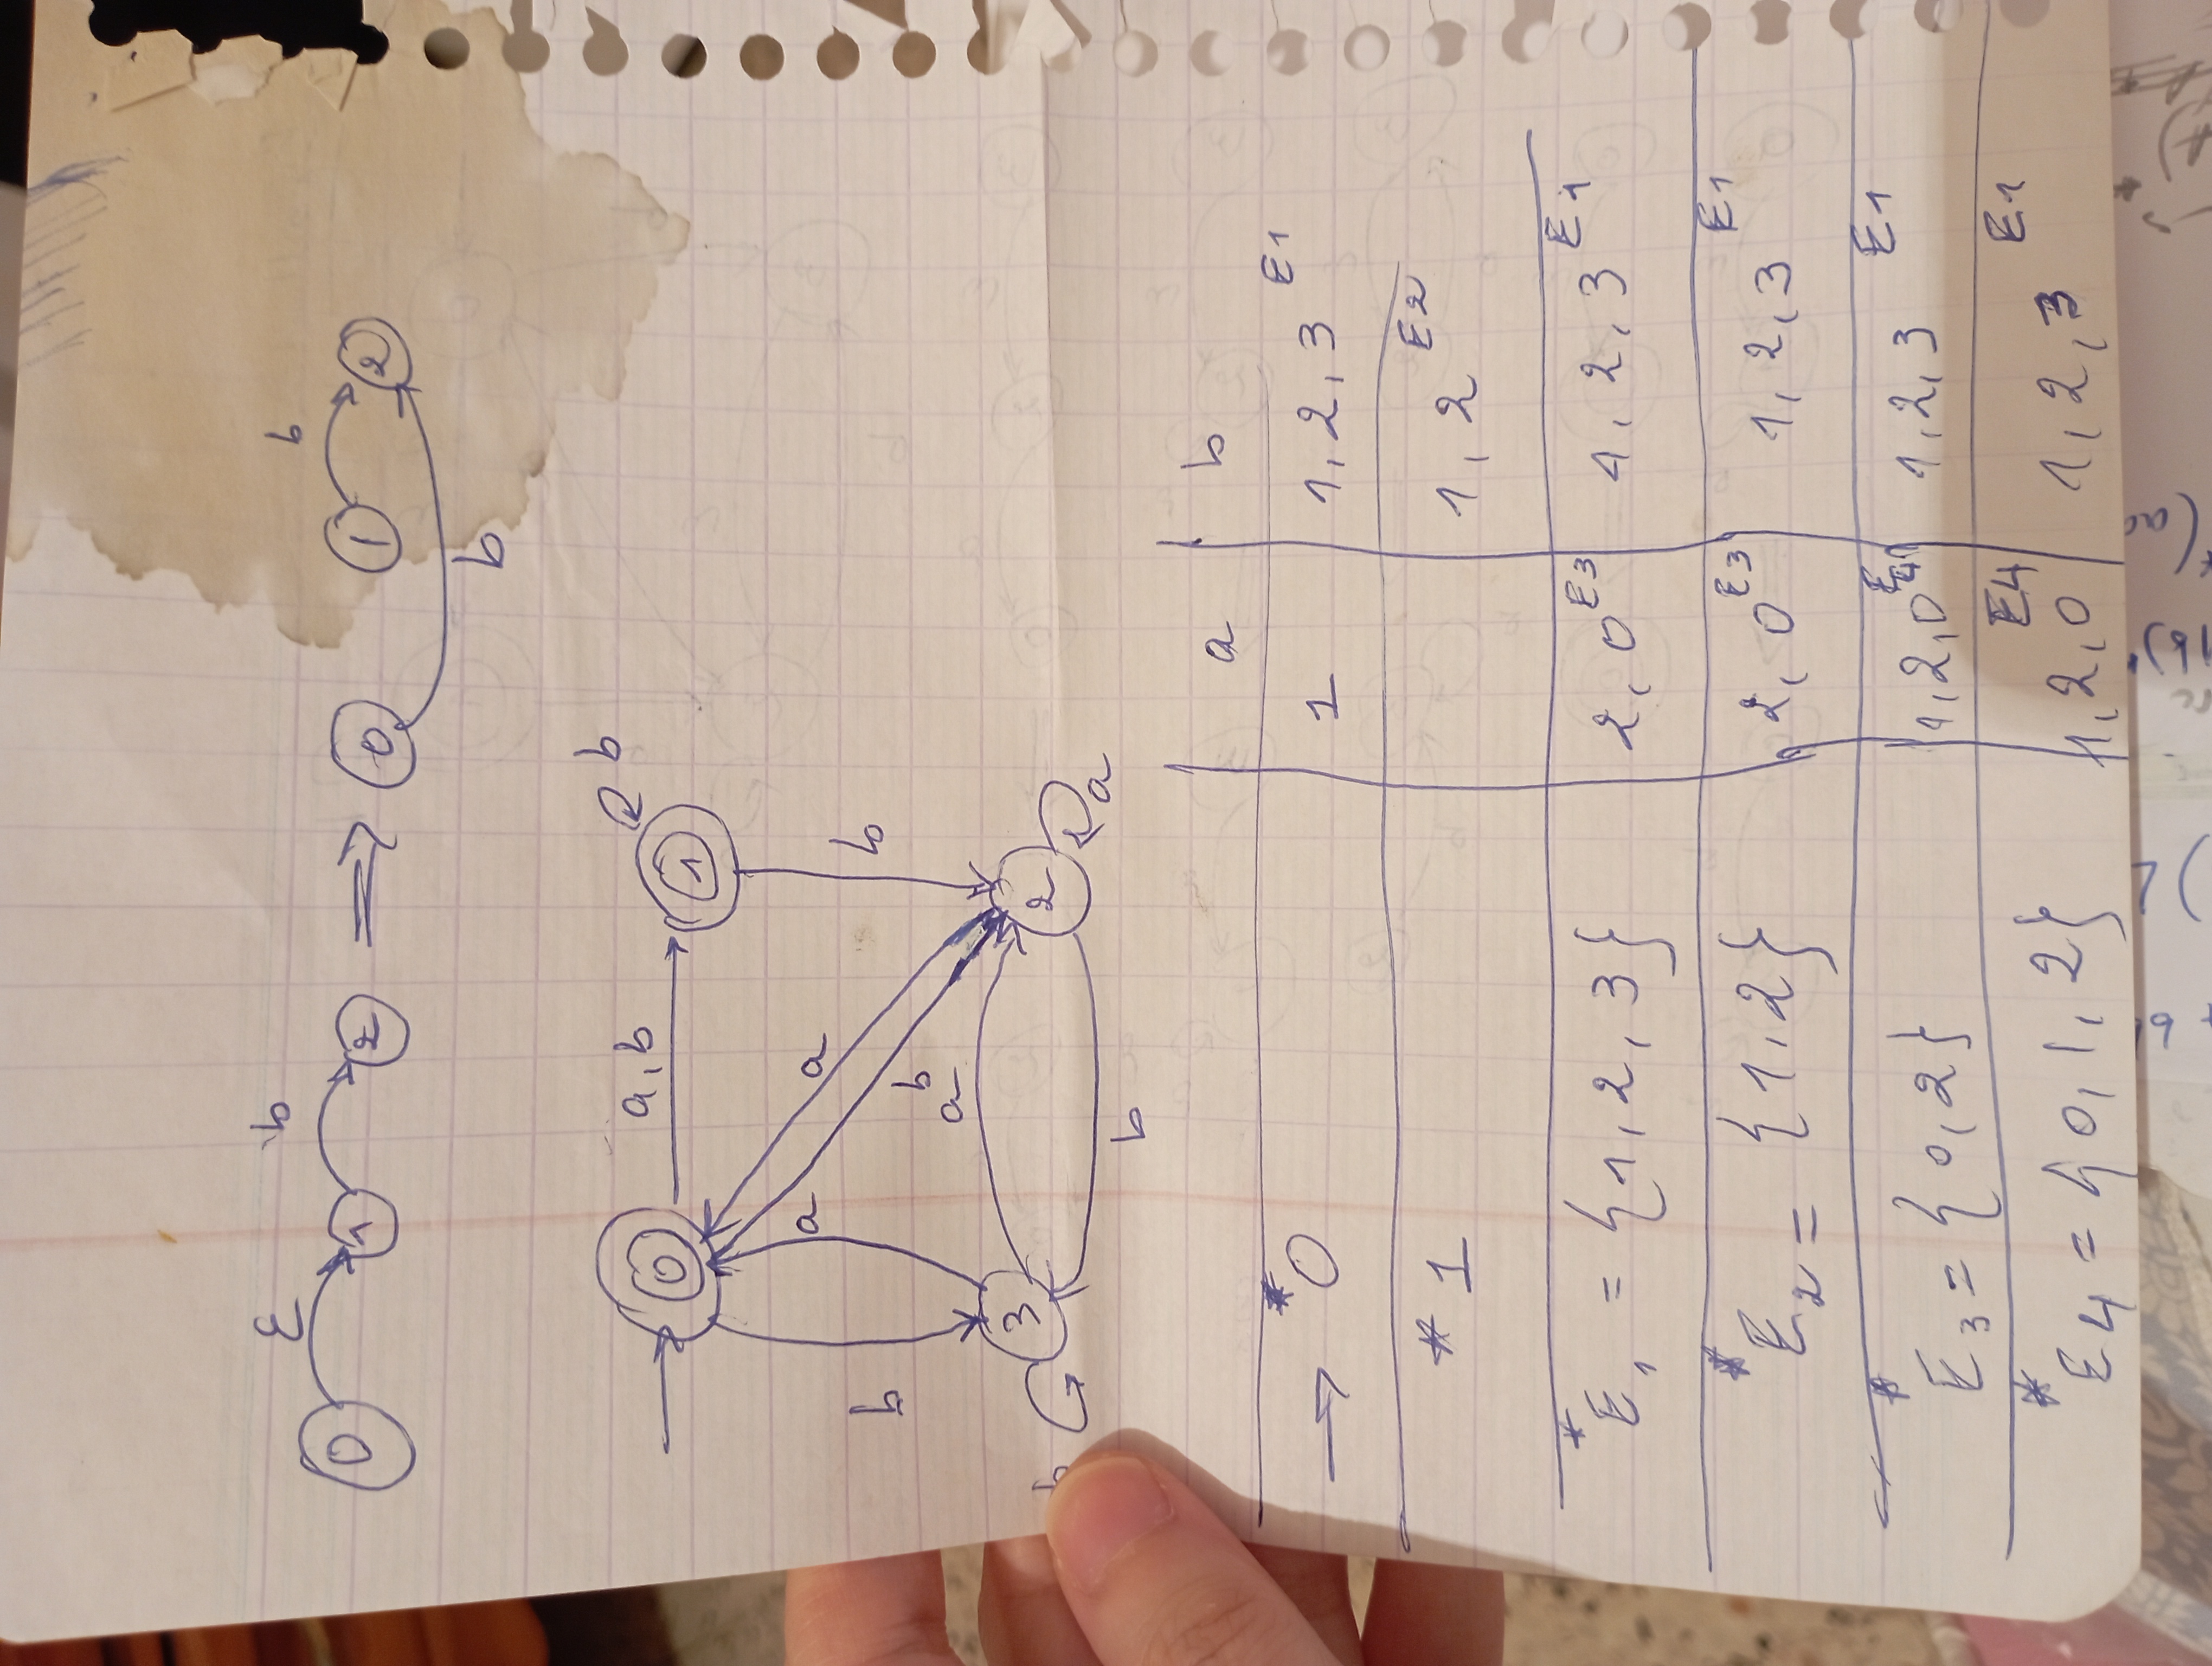 ε b b
0 1 2 ⇒ 0 1 2
b
a,b b
0 1
a a
b b
b
a
3 2
b a
b
a b
→ *0 1 1,2,3 E1
*1 1,2 E2
*E1 = {1,2,3} 2,0 E3 1,2,3 E1
*E2 = {1,2} 2,0 E3 1,2,3 E1
*E3 = {0,2} 1,2,0 E4 1,2,3 E1
*E4 = {0,1,2} 1,2,0 E4 1,2,3 E1